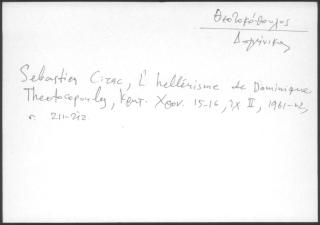 Θεοτοκόπουλος
Δομήνικος
Sebastien Cirac, L'hellénisme de Dominique
Theotocopoulos, Κρητ. Χρον. 15-16, ΙΧ ΙΙ, 1961-62,
σ. 211-212